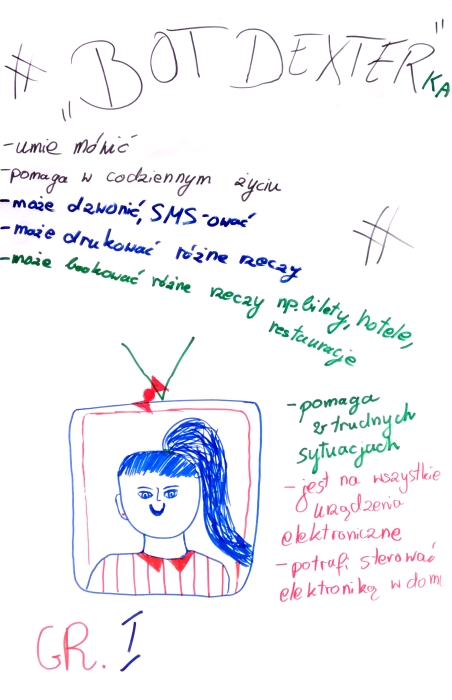 # „BOT DEXTERKA”
- umie mówić
- pomaga w codziennym życiu
- może dzwonić, SMS-ować
- może drukować różne rzeczy
- może bookować różne rzeczy np. bilety, hotele,
restauracje
#
- pomaga
w trudnych
sytuacjach
- jest na wszystkie
urządzenia
elektroniczne
- potrafi sterować
elektroniką w domu
GR. I